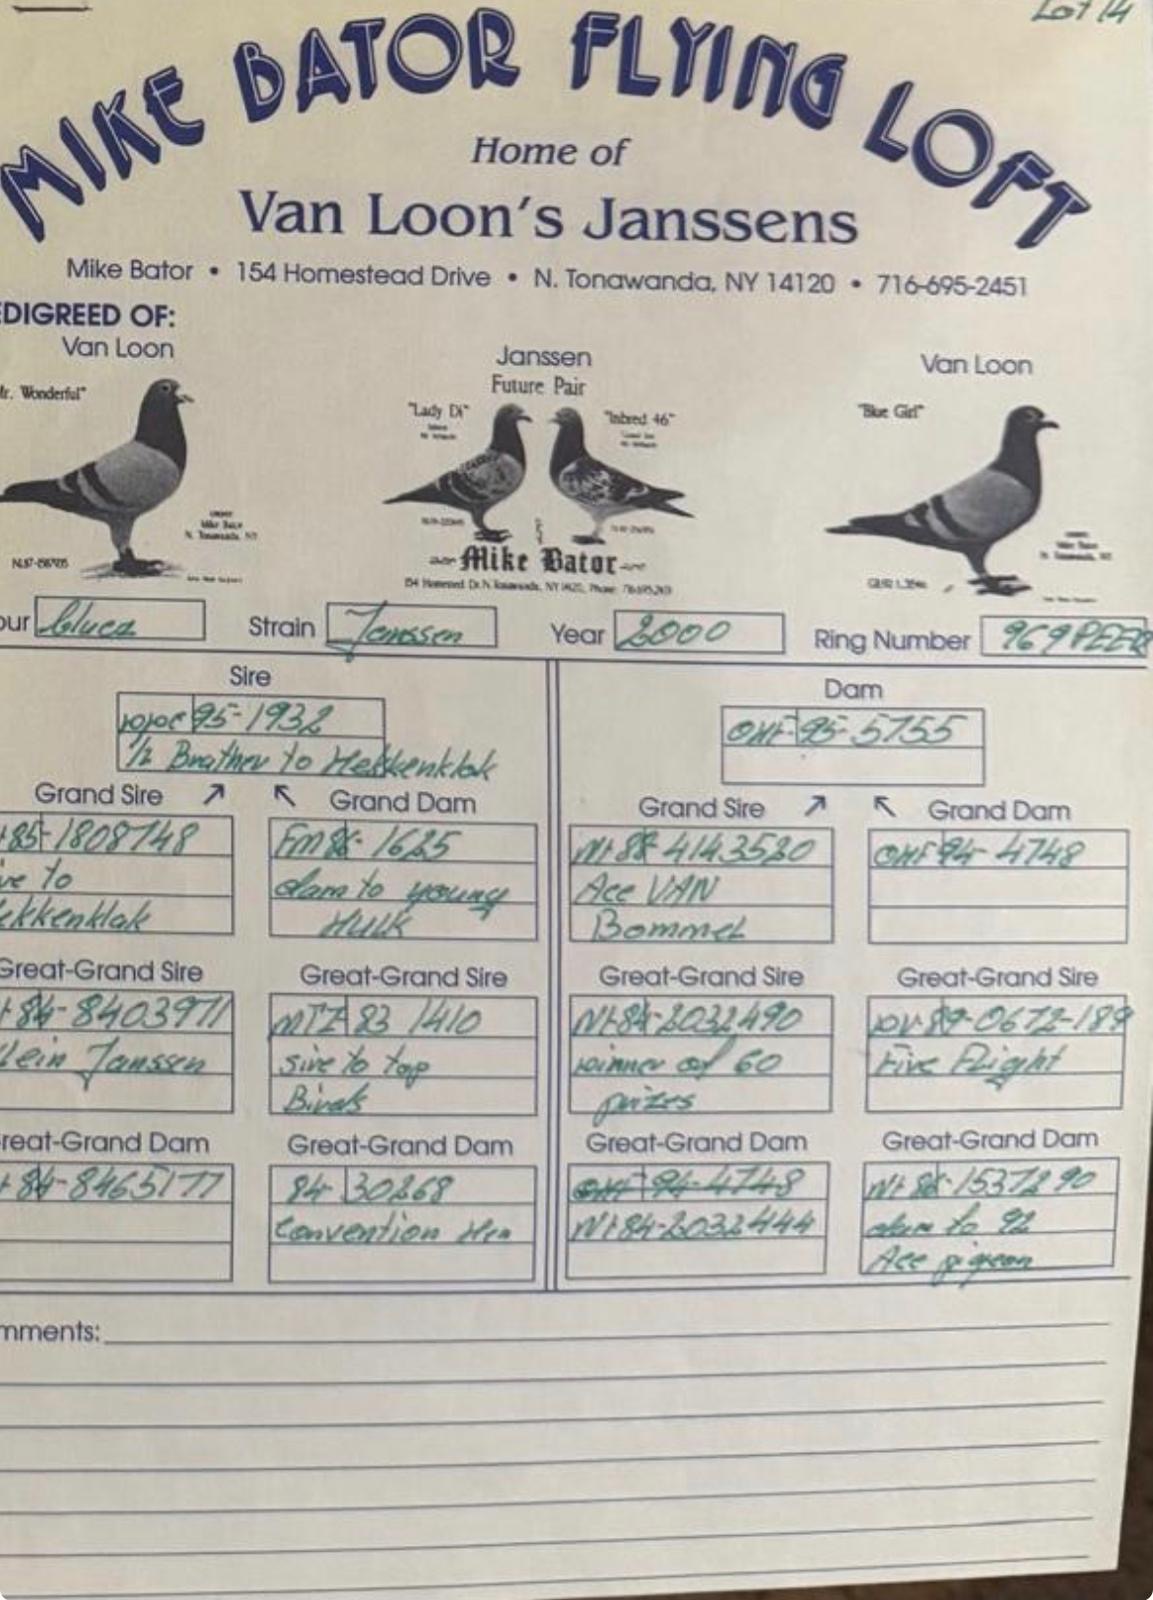 Lot 14
MIKE BATOR FLYING LOFT
Home of
Van Loon's Janssens
Mike Bator • 154 Homestead Drive • N. Tonawanda, NY 14120 • 716-695-2451
EDIGREED OF:
Van Loon Janssen Van Loon
Future Pair
Ir. Wonderful" "Lady Di" "Inbred 46" "Blue Girl"
Mike Bator
our Strain Janssen Year 2000 Ring Number 969 PEER
Sire Dam
95-1932 OHF 95-5755
1/2 Brother to Hekkenklak
Grand Sire Grand Dam Grand Sire Grand Dam
85-1808748 Fm 88-1625 Nl 88-4143520 OHF 94-4748
ve to dam to young Ace VAN
ekkenklak HULK Bommel
Great-Grand Sire Great-Grand Sire Great-Grand Sire Great-Grand Sire
84-8403971 MTZ 83 1410 Nl-84-2032490 DV-89-0672-189
lein Janssen sire to top winner of 60 Five Flight
Birds prizes
reat-Grand Dam Great-Grand Dam Great-Grand Dam Great-Grand Dam
84-8465177 84-30268 OHF 94-4748
Convention Hen Nl 84-2032444 dam to 92
Ace pigeon
mments: